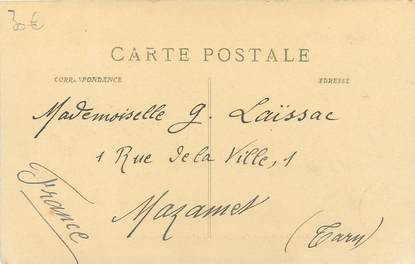 30€
CARTE POSTALE
CORRESPONDANCE
ADRESSE
Mademoiselle G. Laïssac
1 Rue de la Ville, 1
Mazamet
(Tarn)
France